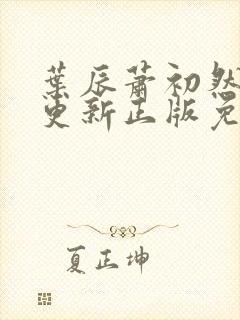 葉辰蕭初然
更新正版免
夏正坤